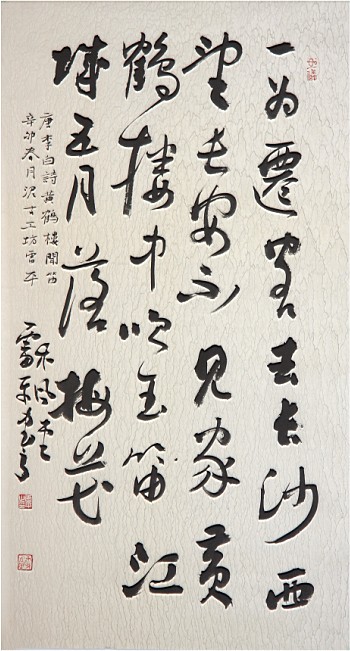 一为遷客去长沙西
望长安不见家黄
鹤楼中吹玉笛江
城五月落梅花
唐李白詩黄鶴樓聞笛
辛卯春月沢古工坊雪平